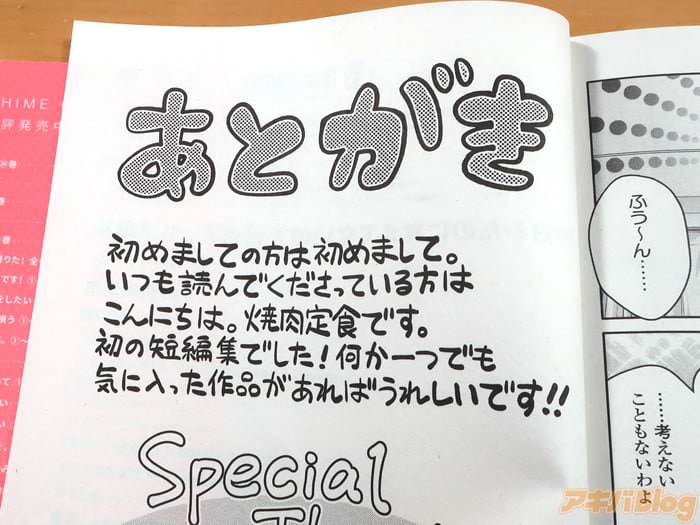 あとがき
初めましての方は初めまして。
いつも読んでくださっている方は
こんにちは。焼肉定食です。
初の短編集でした!何か一つでも
気に入った作品があればうれしいです!!
Special
ふう〜ん……
……考えない
こともないわよ
HIME
評発売中
アキバBlog